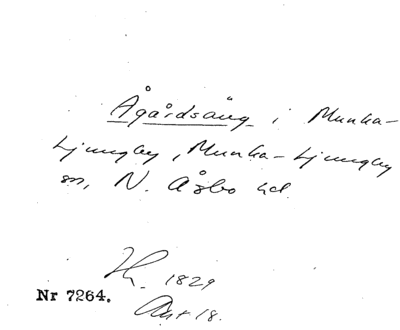 Ågårdsäng i Munka-
Ljungby, Munka-Ljungby
sn, N. Åsbo hd.
1829
Nr 7264.
Akt 18.